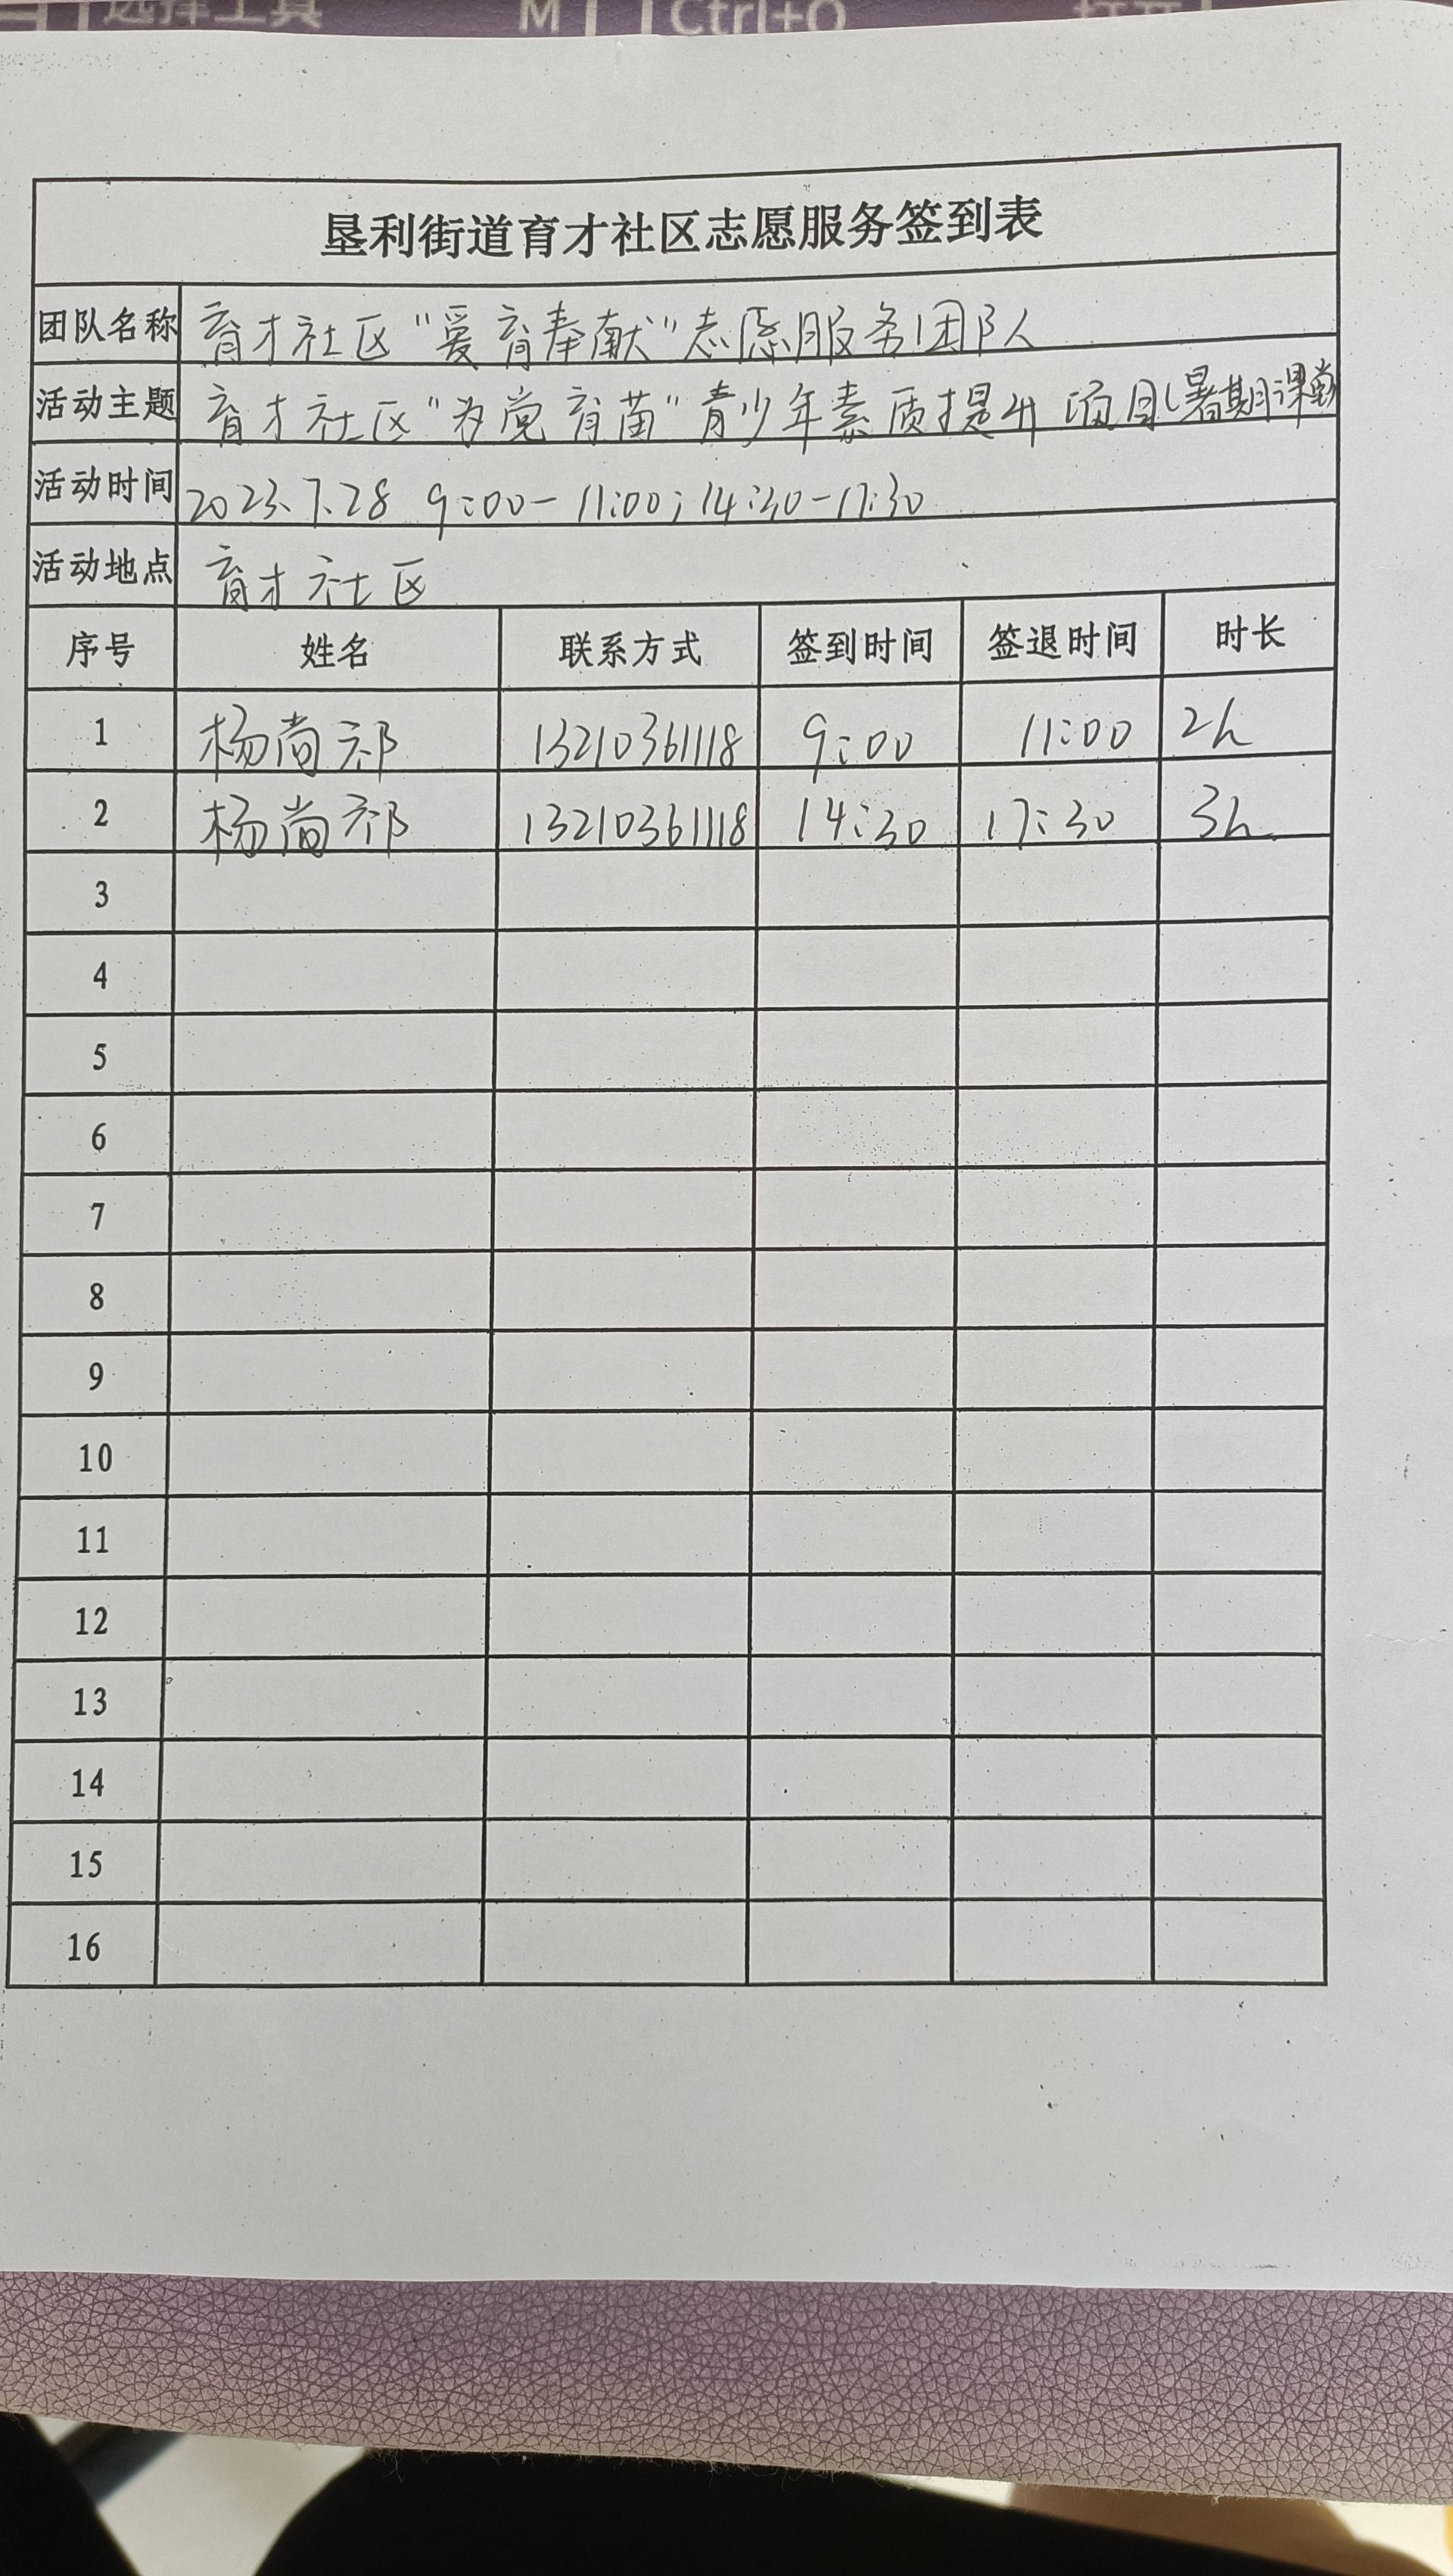 选择工具 M Ctrl+O 打开
垦利街道育才社区志愿服务签到表
团队名称 育才社区“爱育奉献”志愿服务团队
活动主题 育才社区“为党育苗”青少年素质提升项目(暑期课堂
活动时间 2023.7.28 9:00-11:00;14:30-17:30
活动地点 育才社区
序号 姓名 联系方式 签到时间 签退时间 时长
1 杨尚祁 13210361118 9:00 11:00 2h
2 杨尚祁 13210361118 14:30 17:30 3h
3
4
5
6
7
8
9
10
11
12
13
14
15
16